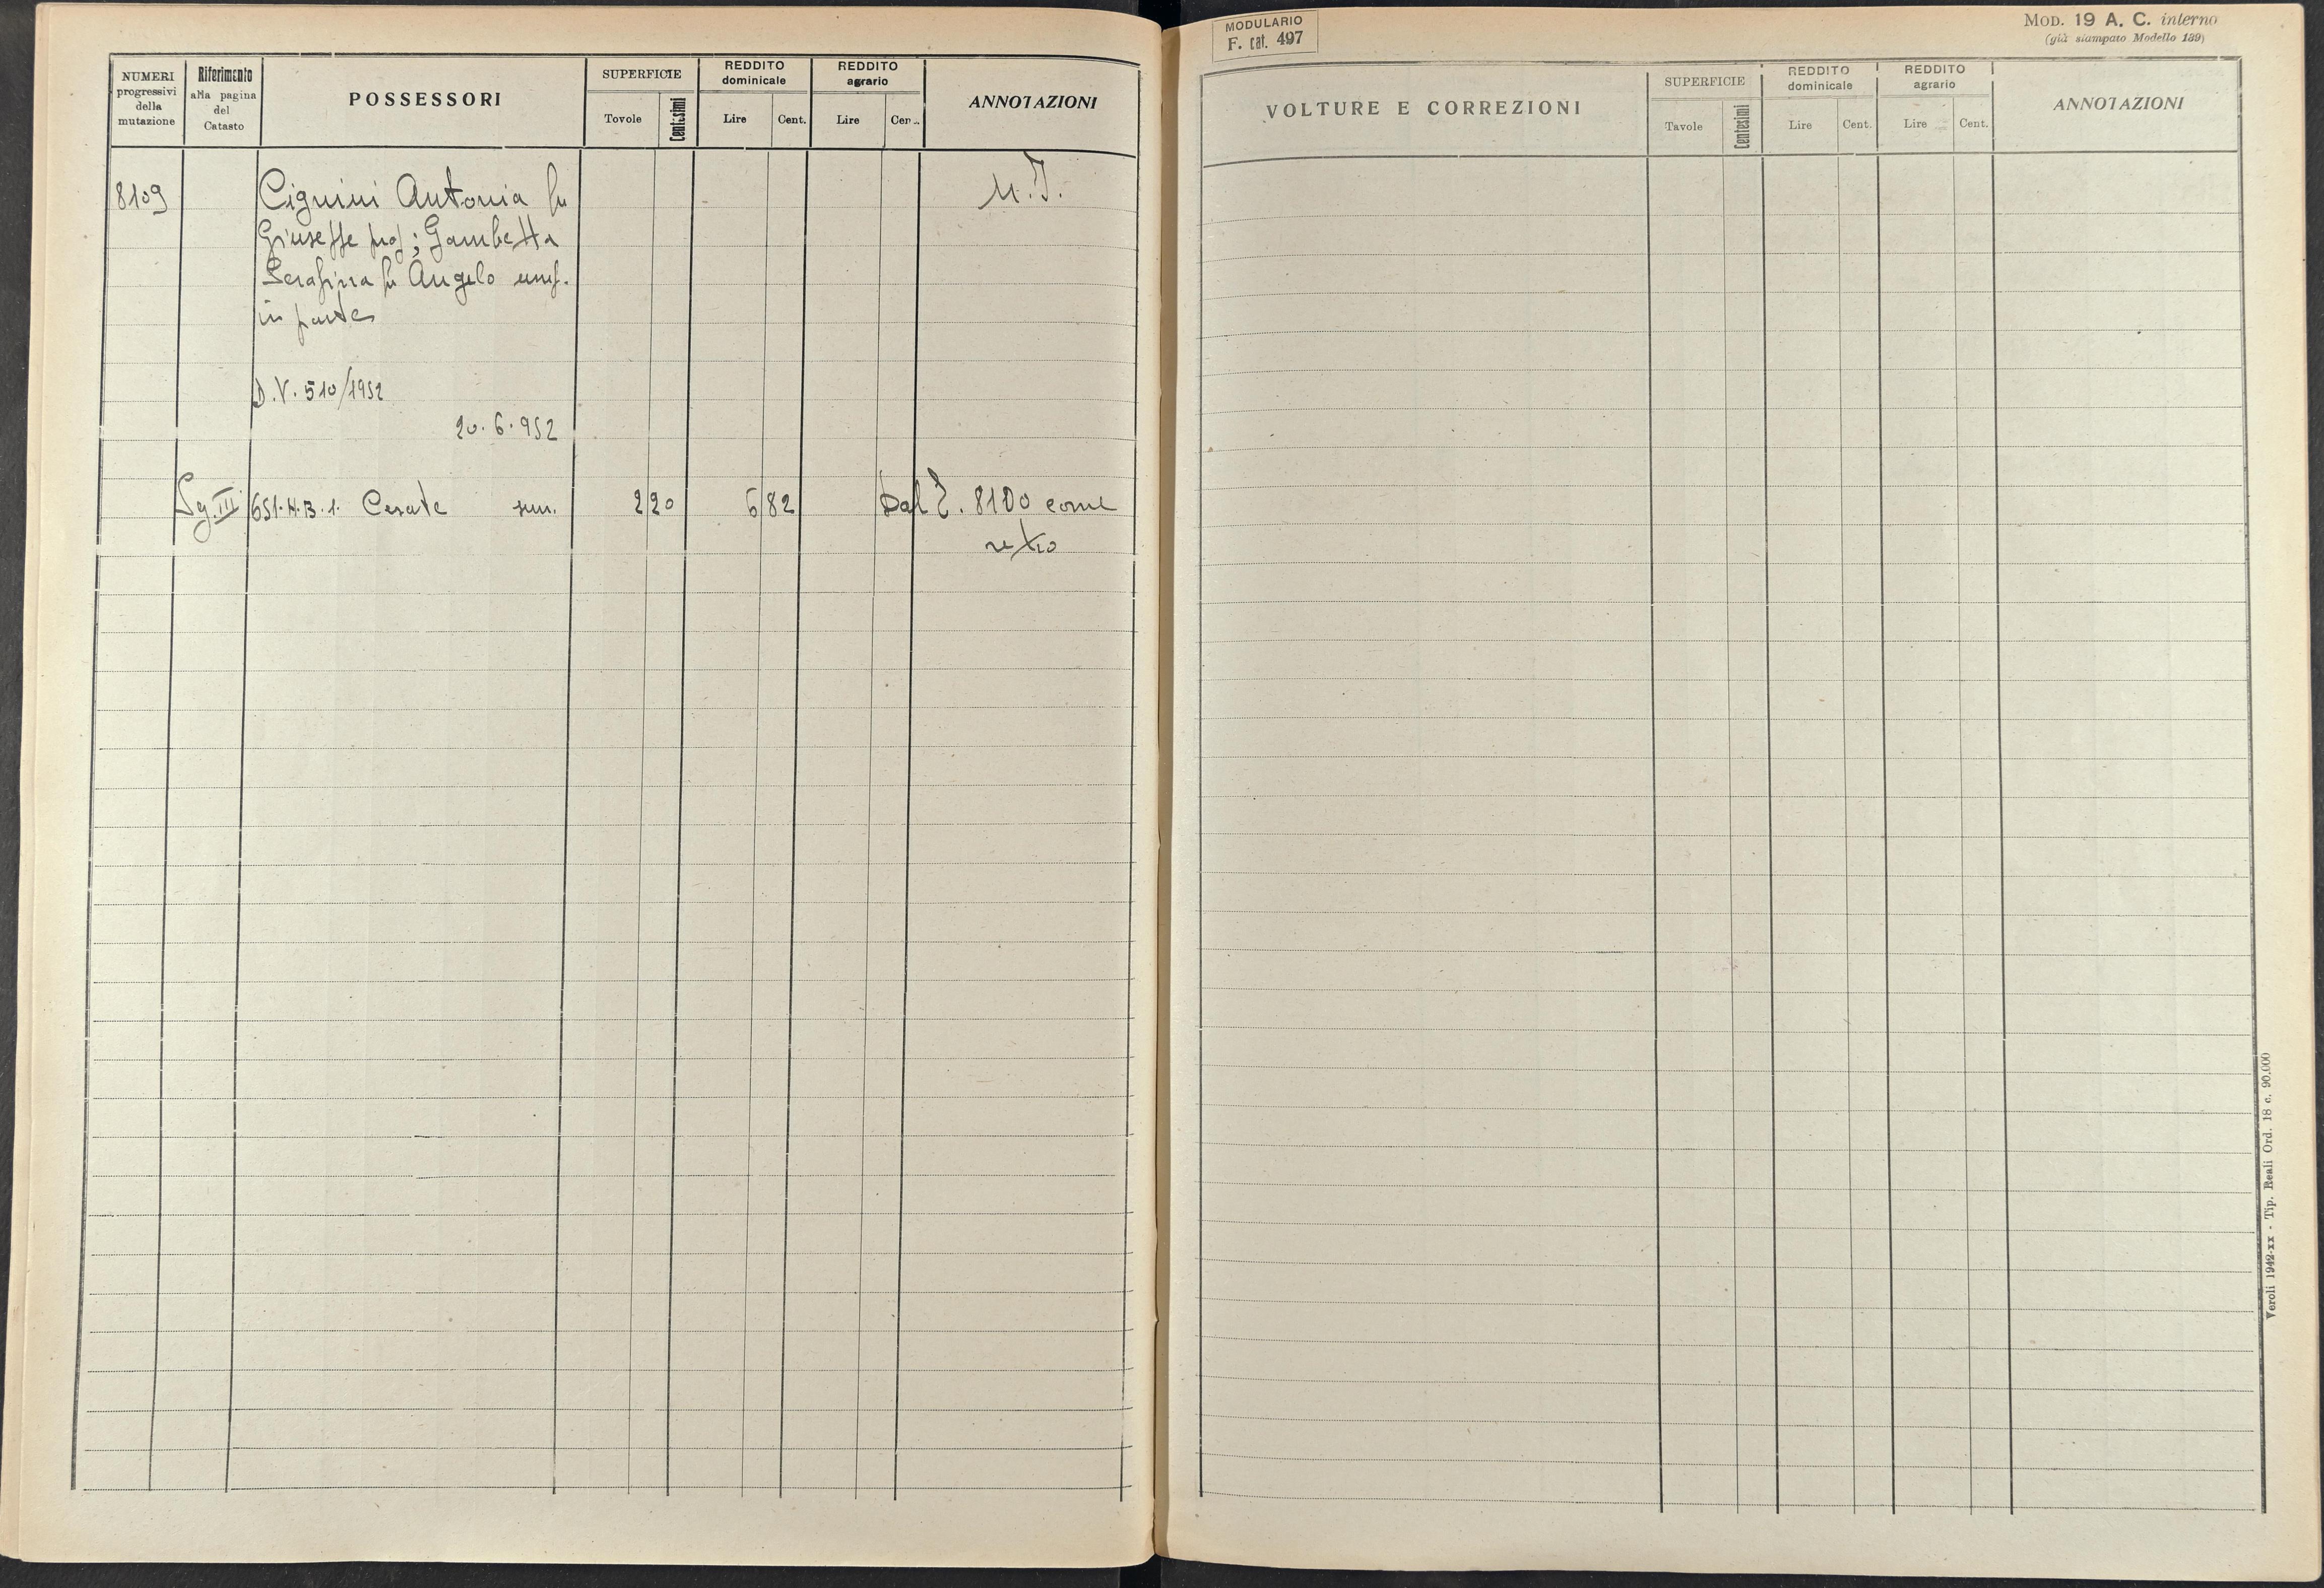 NUMERI progressivi della mutazione
Riferimento alla pagina del Catasto
POSSESSORI
SUPERFICIE
Tovole
Centesimi
REDDITO dominicale
Lire
Cent.
REDDITO agrario
Lire
Cen..
ANNOTAZIONI
8109
Cignini Antonia fu
M.T.
Giuseppe prop; Gambetta
Serafina fu Angelo usuf.
in parte
D.V. 510/1952
20.6.952
Sez. III 651.H.B.1. Cesate sem. 2 20 6 82 Dal P. 8100 come
retro
MODULARIO
F. cat. 497
MOD. 19 A. C. interno
(già stampato Modello 189)
VOLTURE E CORREZIONI
SUPERFICIE
Tavole
Centesimi
REDDITO dominicale
Lire
Cent.
REDDITO agrario
Lire
Cent.
ANNOTAZIONI
Veroli 1942-xx - Tip. Reali Ord. 18 c. 90.000